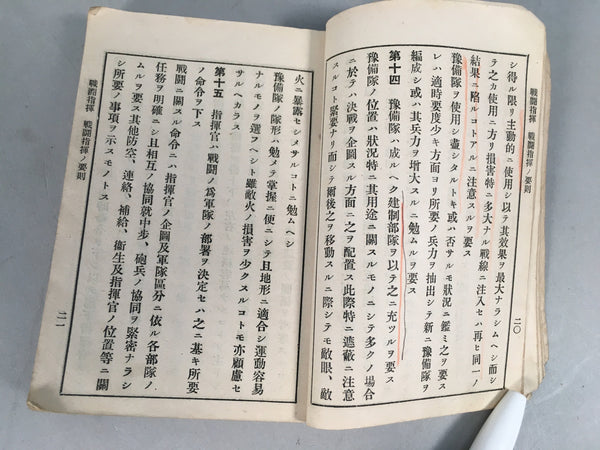 戰鬪指揮 戰鬪指揮ノ要則
二〇
シ得ル限リ主動的ニ使用シ以テ其效果ヲ最大ナラシムヘシ而シ
テ之カ使用ニ方リ損害特ニ多大ナル戰線ニ注入セハ再ヒ同一ノ
結果ニ陷ルコトアルニ注意スルヲ要ス
豫備隊ヲ使用シ盡シタルトキ或ハ否サルモ狀況ニ鑑ミ之ヲ要ス
レハ適時要度少キ方面ヨリ所要ノ兵力ヲ抽出シテ新ニ豫備隊ヲ
編成シ或ハ其兵力ヲ增大スルニ勉ムルヲ要ス
第十四 豫備隊ハ成ルヘク建制部隊ヲ以テ之ニ充ツルヲ要ス
豫備隊ノ位置ハ狀況特ニ其用途ニ關スルモノニシテ多クノ場合
ニ於テハ決戰ヲ企圖スル方面ニ之ヲ配置ス此際特ニ遮蔽ニ注意
スルコト緊要ナリ而シテ爾後之ヲ移動スルニ際シテモ敵眼、敵
火ニ暴露セシメサルコトニ勉ムヘシ
豫備隊ノ隊形ハ勉メテ掌握ニ便ニシテ且地形ニ適合シ運動容易
ナルモノヲ選フヘシト雖敵火ノ損害ヲ少クスルコトモ亦顧慮セ
サルヘカラス
第十五 指揮官ハ戰鬪ノ爲軍隊ノ部署ヲ決定セハ之ニ基キ所要
ノ命令ヲ下ス
戰鬪ニ關スル命令ニハ指揮官ノ企圖及軍隊區分ニ依ル各部隊ノ
任務ヲ明確ニシ且相互ノ協同就中步、砲兵ノ協同ヲ緊密ナラシ
ムルヲ要ス其他防空、連絡、補給、衞生及指揮官ノ位置等ニ關
シ所要ノ事項ヲ示スモノトス
戰鬪指揮 戰鬪指揮ノ要則
二一